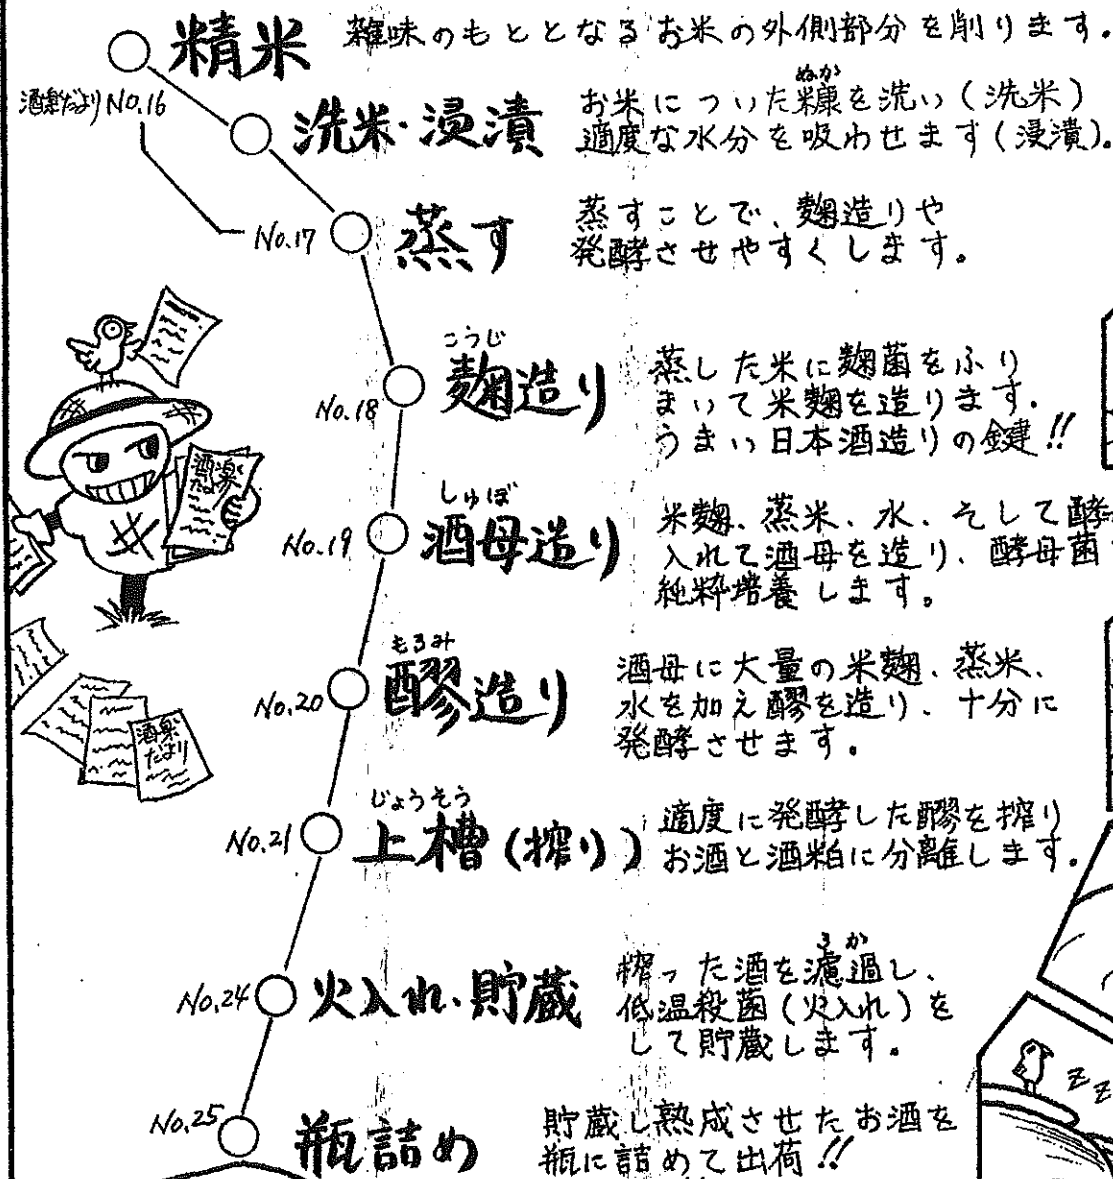 精米
雑味のもととなるお米の外側部分を削ります。
酒楽だより No.16
洗米・浸漬
ぬか
お米についた糠を洗い(洗米)
適度な水分を吸わせます(浸漬)。
No.17
蒸す
蒸すことで、麹造りや
発酵させやすくします。
No.18
こうじ
麹造り
蒸した米に麹菌をふり
まいて米麹を造ります。
うまい日本酒造りの鍵!!
酒楽
だより
No.19
しゅぼ
酒母造り
米麹、蒸米、水、そして酵
入れて酒母を造り、酵母菌
純粋培養します。
No.20
もろみ
醪造り
酒母に大量の米麹、蒸米、
水を加え醪を造り、十分に
発酵させます。
酒楽
だより
No.21
じょうそう
上槽(搾り)
適度に発酵した醪を搾り
お酒と酒粕に分離します。
No.24
火入れ・貯蔵
ろか
搾った酒を濾過し、
低温殺菌(火入れ)を
して貯蔵します。
zz
No.25
瓶詰め
貯蔵し熟成させたお酒を
瓶に詰めて出荷!!